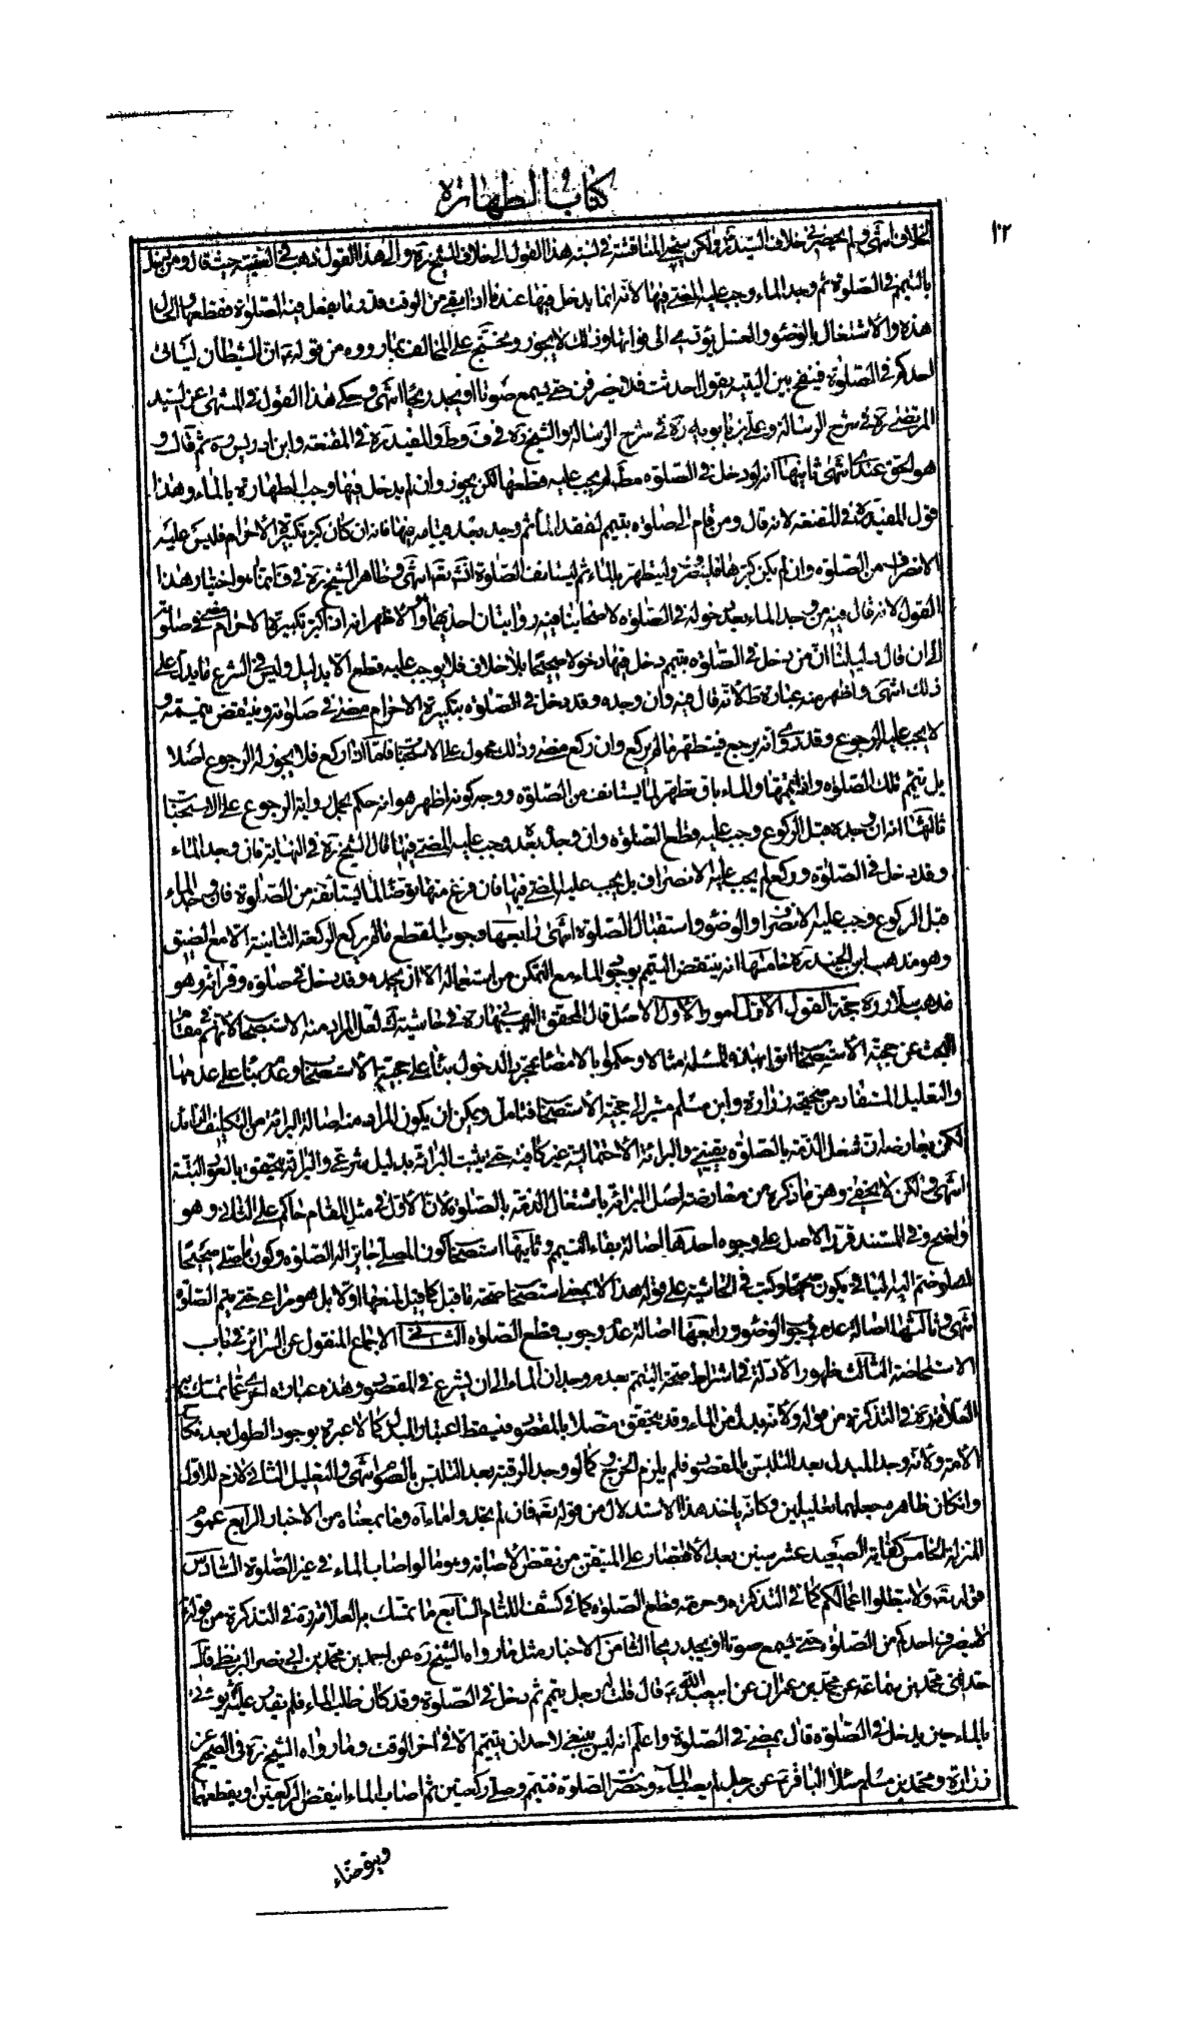 كتاب الطهارة
١٢
الخلاف انتهى ولم يحضرني خلاف السيد ره ولكن يتجه المناقشة في نسبة هذا القول الى خلاف الشيخ ره والى هذا القول ذهب في الغنية حيث قال ومن دخل
بالتيمم في الصلوة ثم وجد الماء وجب عليه المضي فيها لانه انما يدخل فيها عندنا اذا بقي من الوقت قدر ما يفعل فيه الصلوة فقطعها والحال
هذه والاشتغال بالوضوء والغسل يؤدي الى فواتها وذلك لا يجوز ويحتج على المخالف بما رووه من قوله ان الشيطان ليأتي
احدكم في الصلوة فينفخ بين اليتيه يقول احدثت فلا ينصرفن حتى يسمع صوتا او يجد ريحا انتهى وحكى هذا القول في المنتهى عن السيد
المرتضى ره في شرح الرسالة وعلي بن بابويه ره في شرح الرسالة والشيخ ره في ف وط والمفيد ره في المقنعة وابن ادريس ره ثم قال و
هو الحق عندي انتهى ثانيها انه لو دخل في الصلوة مطلقا لم يجب عليه قطعها لكن يجوز وان لم يدخل فيها وجب الطهارة بالماء وهذا
قول المفيد ره في المقنعة لانه قال ومن قام الى صلوة بتيمم لفقد الماء ثم وجد بعد قيامه فيها فانه ان كان كبر تكبيرة الاحرام فليس عليه
الانصراف من الصلوة وان لم يكن كبرها فلينصرف وليتطهر بالماء ثم ليستانف الصلوة انشاء تعه انتهى وظاهر الشيخ ره في ف ايضا هو اختيار هذا
القول لانه قال فيه من وجد الماء بعد دخوله في الصلوة لاصحابنا فيه روايتان احديهما وهو الاظهر انه اذا كبر تكبيرة الاحرام مضى في صلوته
الى ان قال دليلنا ان من دخل في الصلوة بتيمم دخل فيها دخولا صحيحا بلا خلاف فلا يوجب عليه قطع الا بدليل وليس في الشرع ما يدل على
ذلك انتهى واظهر منه عبارة ط لانه قال فيه وان وجده وقد دخل في الصلوة بتكبيرة الاحرام مضى في صلوته ولا ينتقض تيممه و
لا يجب عليه الرجوع وقد روي انه يرجع فيتطهر ما لم يركع وان ركع مضى وذلك محمول على الاستحباب فاما اذا ركع فلا يجوز له الرجوع اصلا
بل يتمم تلك الصلوة واذا تممها والماء باق تطهر لما يستانف من الصلوة ووجه كونه اظهر هو انه حكم بحمل رواية الرجوع على الاستحباب
ثالثها انه ان وجده قبل الركوع وجب عليه قطع الصلوة وان وجده بعده وجب عليه المضي فيها قال الشيخ ره في النهاية فان وجد الماء
وقد دخل في الصلوة وركع لم يجب عليه الانصراف بل يجب عليه المضي فيها فان فرغ منها توضأ لما يستانفه من الصلوة فان وجد الماء
قبل الركوع وجب عليه الانصراف والوضوء واستقبال الصلوة انتهى رابعها وجوب القطع ما لم يركع الركعة الثانية الا مع الضيق
وهو مذهب ابن الجنيد ره خامسها انه ينتقض التيمم بوجود الماء مع التمكن من استعماله الا ان يجده وقد دخل في صلوة وقراءة وهو
مذهب سلار ره حجة القول الاول امور الاول الاصل قال المحقق البهبهاني ره في حاشية ك لعل المراد منه الاستصحاب لانهم في مقام
البحث عن حجية الاستصحاب اتوا بهذه المسئلة مثالا وحكموا بالامضاء بمجرد الدخول بناء على حجية الاستصحاب وعدمه بناء على عدمها
والتعليل المستفاد من صحيحة زرارة وابن مسلم مشير الى حجية الاستصحاب فتامل ويمكن ان يكون المراد منه اصالة البرائة من التكليف الزائد
لكن يعارضه ان شغل الذمة بالصلوة يقيني والبرائة الاحتمالية غير كافية حتى يثبت البرائة بدليل شرعي والبرائة يتحقق بالعود البتة
انتهى ولكن لا يخفى وهن ما ذكره من معارضة اصل البرائة باشتغال الذمة بالصلوة لان الاول في مثل المقام حاكم على الثاني وهو
واضح وفي المستند قرر الاصل على وجوه احدها اصالة بقاء التيمم وثانيها استصحاب كون المصلي جايزا له الصلوة وكون ما صلى صحيحا
لصلوح ضم الباقي فيكون صحيحا وكتب في الحاشية على قوله هذا لا بمعنى استصحاب صحة ما قبل كما قيل لمنعها اولا بل هو مراعى حتى يتم الصلوة
انتهى وثالثها اصالة عدم وجوب الوضوء ورابعها اصالة عدم وجوب قطع الصلوة الثاني الاجماع المنقول عن السرائر في باب
الاستحاضة الثالث ظهور الادلة في اشتراط صحة التيمم بعدم وجدان الماء الى ان يشرع في المقصود وهذه عبارة اخرى عما تمسك به
العلامة ره في التذكرة من قوله ولانه بدل من الماء وقد تحقق متصلا بالمقصود فيسقط اعتبار المبدل كما لا عبرة بوجود الطول بعد نكاح
الامة ولانه وجد المبدل بعد التلبس بالمقصود فلم يلزم الخروج كما لو وجد الرقبة بعد التلبس بالصوم انتهى والتعليل الثاني لازم للاول
وان كان ظاهره جعلهما تعليلين وكانه ياخذ هذا الاستدلال من قوله تعه فان لم تجدوا ماء اه وما بمعناه من الاخبار الرابع عموم
المنزلة الخامس كفاية الصعيد عشر سنين بعد الاقتصار على المتيقن من نقض الاصابة وهو ما لو اصاب الماء في غير الصلوة السادس
قوله تعه ولا تبطلوا اعمالكم كما في التذكرة وحرمة قطع الصلوة كما في كشف اللثام السابع ما تمسك به العلامة ره في التذكرة من قوله
لا ينصرف احدكم من الصلوة حتى يسمع صوتا او يجد ريحا الثامن الاخبار مثل ما رواه الشيخ ره عن احمد بن محمد بن ابي نصر البزنطي قال
حدثني محمد بن سماعة عن محمد بن حمران عن ابي عبد الله ع قال قلت له رجل تيمم ثم دخل في الصلوة وقد كان طلب الماء فلم يقدر عليه ثم يؤتى
بالماء حين يدخل في الصلوة قال يمضي في الصلوة واعلم انه ليس ينبغي لاحد ان يتيمم الا في اخر الوقت وما رواه الشيخ ره في الصحيح عن
زرارة ومحمد بن مسلم سئلا الباقر ع عن رجل لم يصب الماء وحضرت الصلوة فتيمم وصلى ركعتين ثم اصاب الماء اينقض الركعتين او يقطعهما
ويتوضاء